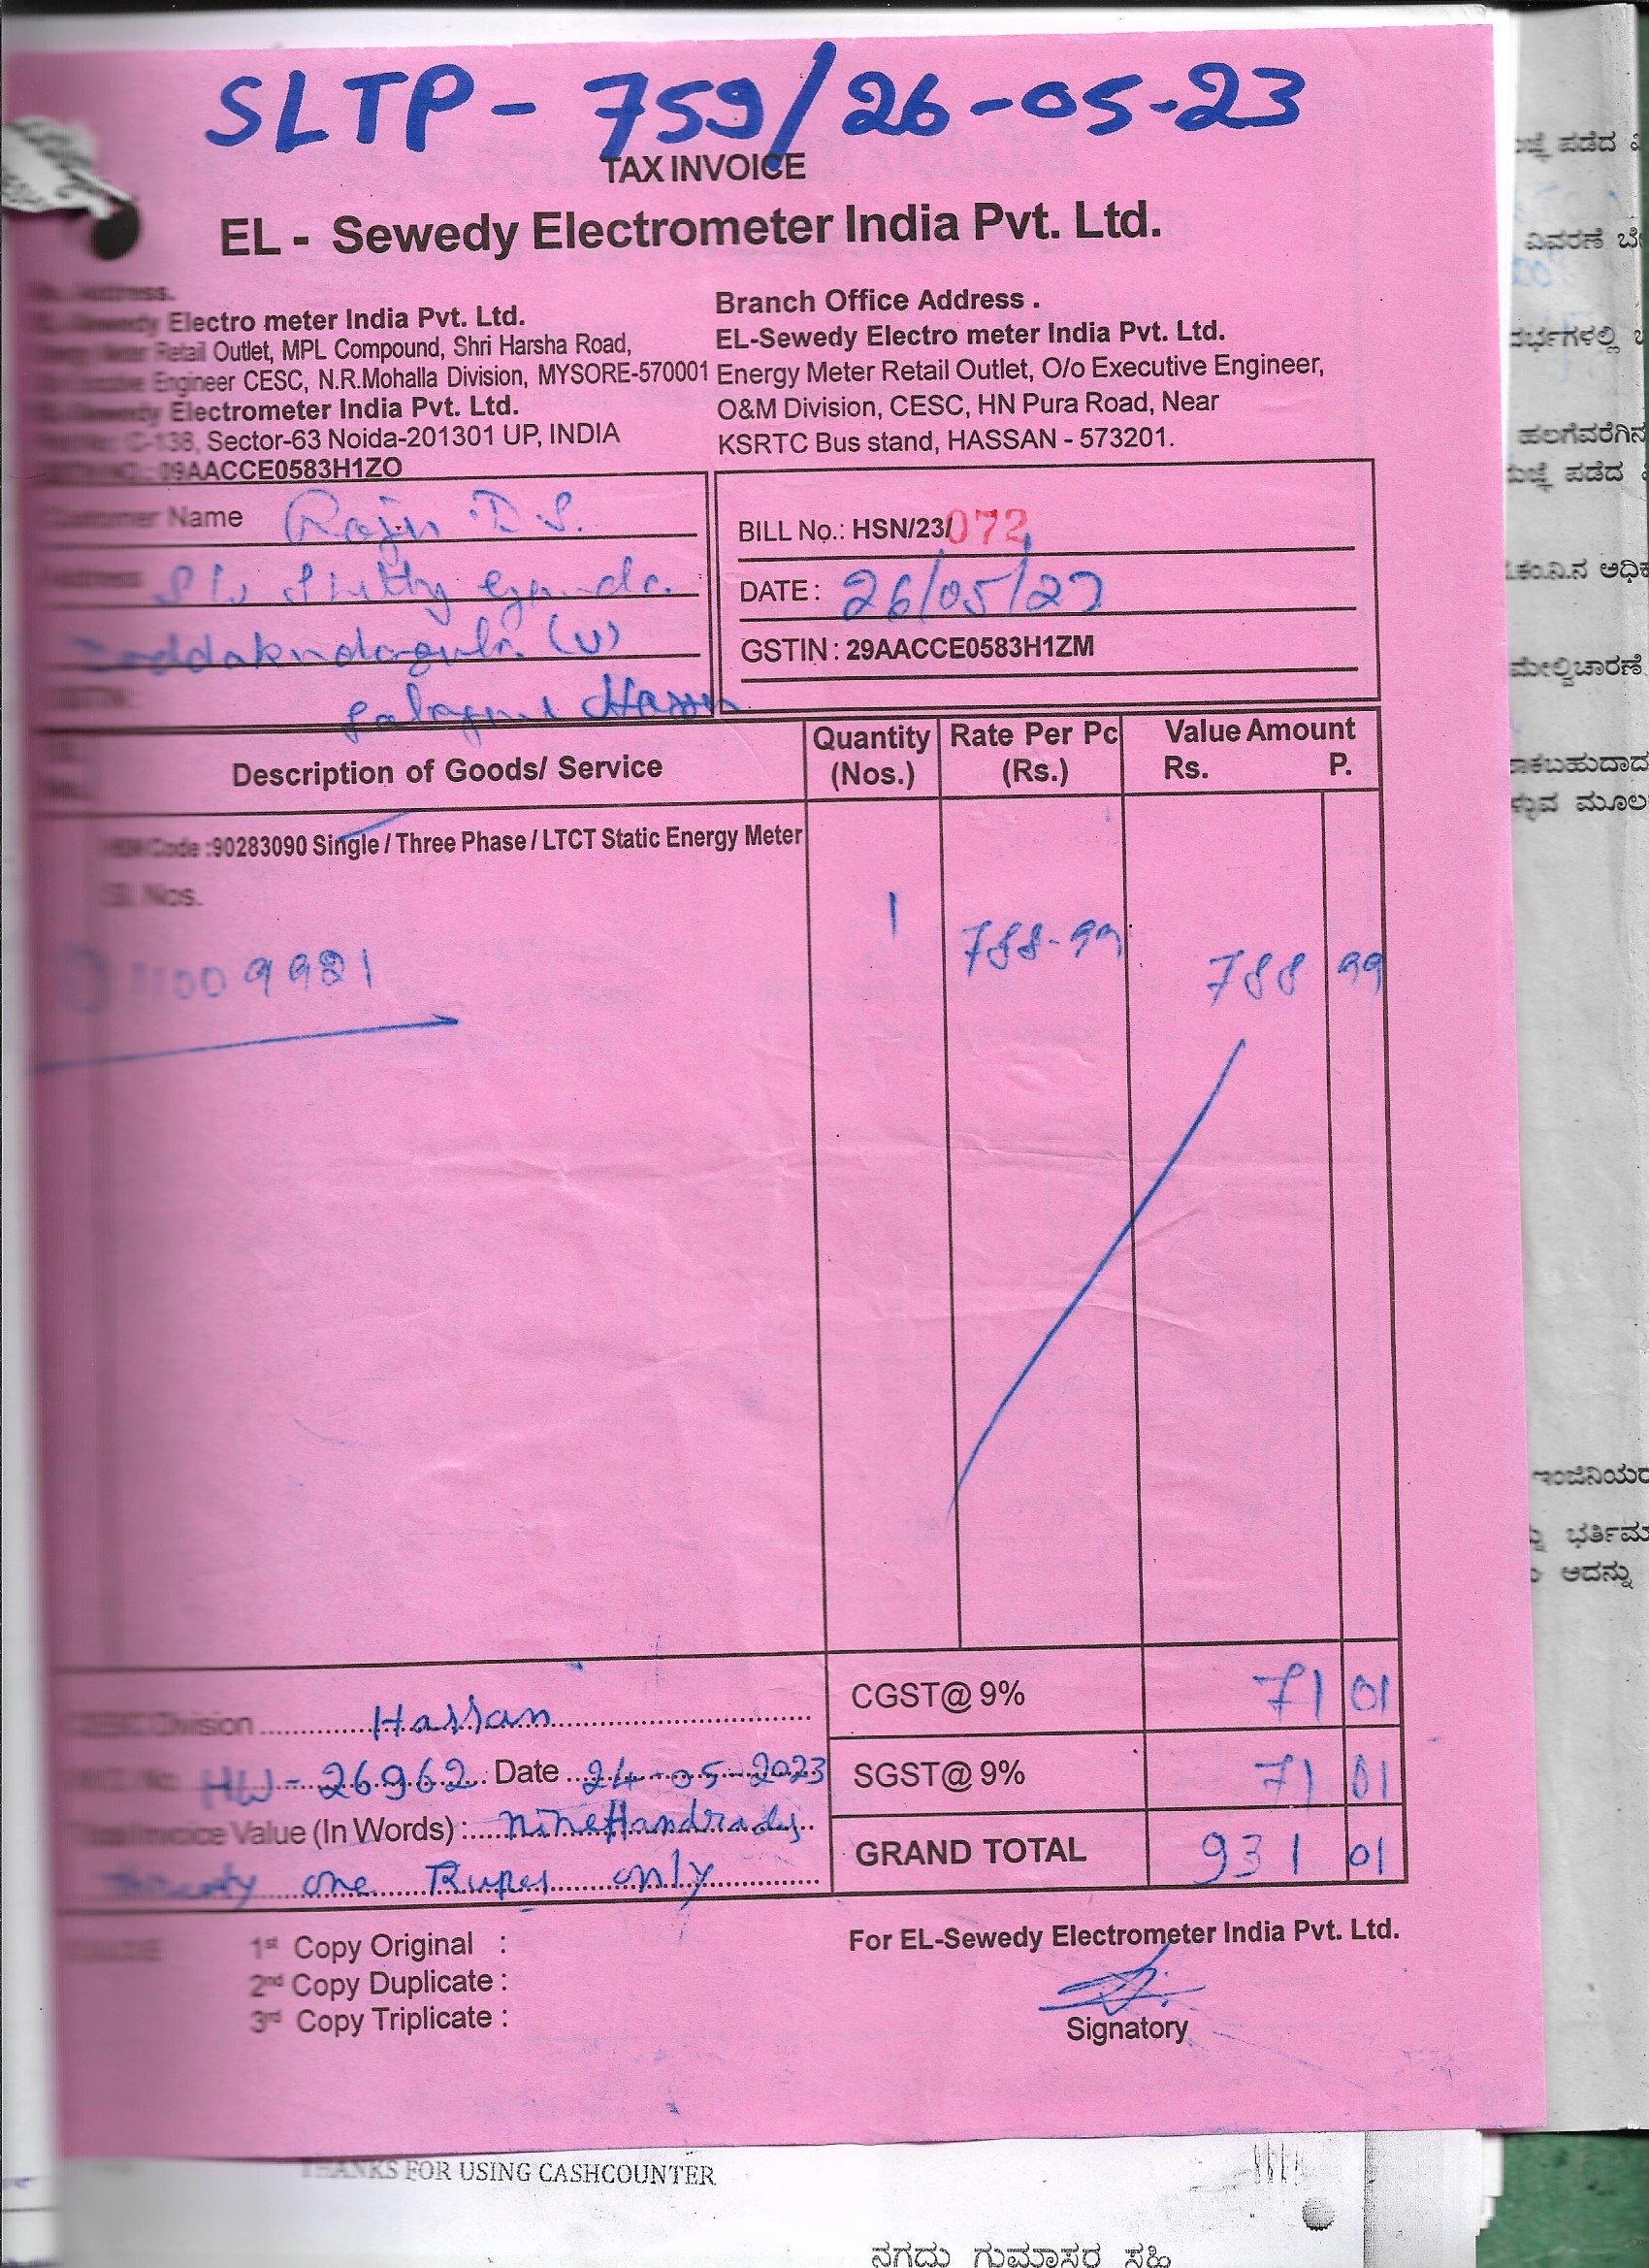 SLTP - 759/26-05-23
TAX INVOICE
EL - Sewedy Electrometer India Pvt. Ltd.
Address.
EL-Sewedy Electro meter India Pvt. Ltd.
Energy Meter Retail Outlet, MPL Compound, Shri Harsha Road,
Engineer CESC, N.R.Mohalla Division, MYSORE-570001
EL-Sewedy Electrometer India Pvt. Ltd.
C-138, Sector-63 Noida-201301 UP, INDIA
09AACCE0583H1ZO
Branch Office Address .
EL-Sewedy Electro meter India Pvt. Ltd.
Energy Meter Retail Outlet, O/o Executive Engineer,
O&M Division, CESC, HN Pura Road, Near
KSRTC Bus stand, HASSAN - 573201.
Customer Name Raju
Address
(V)
GSTIN:
Hassan
BILL No.: HSN/23/072
DATE : 26/05/23
GSTIN : 29AACCE0583H1ZM
Description of Goods/ Service
Quantity (Nos.)
Rate Per Pc (Rs.)
Value Amount
Rs. P.
HSN Code :90283090 Single / Three Phase / LTCT Static Energy Meter
Sl. Nos.
1 788-99 788 99
9921
CGST@ 9% 71 01
CESC Division Hassan
SGST@ 9% 71 01
HW-26962 Date 24-05-2023
Total Invoice Value (In Words) : NineHandrady
one Rupes only
GRAND TOTAL 931 01
1st Copy Original :
2nd Copy Duplicate :
3rd Copy Triplicate :
For EL-Sewedy Electrometer India Pvt. Ltd.
Signatory
THANKS FOR USING CASHCOUNTER
ನಗದು ಗುಮಾಸ್ತರ ಸಹಿ
ಪಡೆದ
ವಿವರಣೆ
ಹಲಗೆವರೆಗಿನ
ಪಡೆದ
ಮೇಲ್ವಿಚಾರಣೆ
ಮೂಲ
ಅದನ್ನು